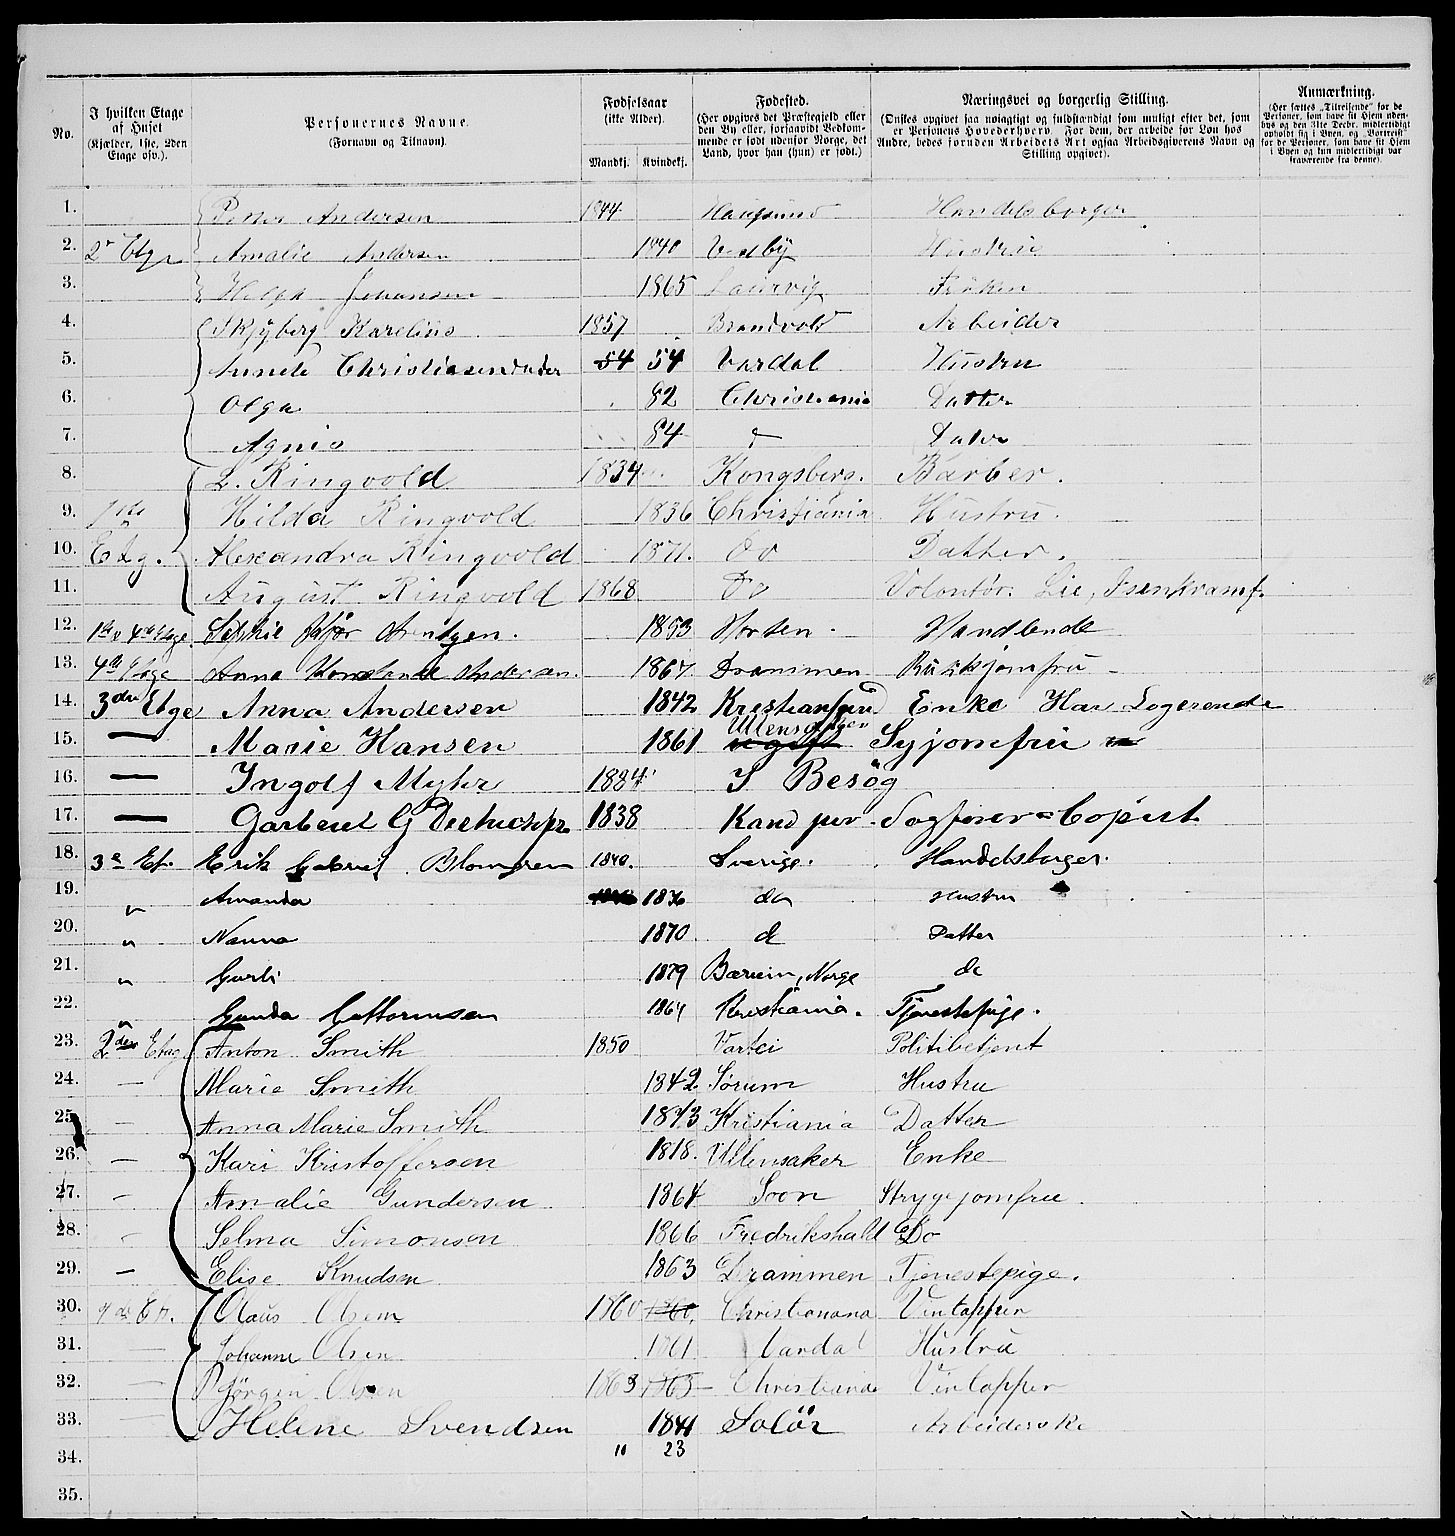 No.
I hvilken Etage af Huset (Kjælder, 1ste, 2den Etage osv.).
Personernes Navne. (Fornavn og Tilnavn).
Fødselsaar (ikke Alder). Mandkj. Kvindekj.
Fødested. (Her opgives det Præstegjeld eller den By eller, forsaavidt Vedkommende er født udenfor Norge, det Land, hvor han (hun) er født.)
Næringsvei og borgerlig Stilling. (Ønskes opgivet saa nøiagtigt og fuldstændigt som muligt efter det, som er Personens Hovederhverv. For dem, der arbeide for Løn hos Andre, bedes foruden Arbeidets Art ogsaa Arbeidsgiverens Navn og Stilling opgivet).
Anmærkning. (Her sættes „Tilreisende“ for de Personer, som have sit Hjem udenbys og den 31te Decbr. midlertidigt opholdt sig i Byen, og „Bortreist“ for de Personer, som have sit Hjem i Byen og kun midlertidigt var fraværende fra denne).
1. Petter Andersen 1844 Haugsund Handelsborger
2. 2n Etge Amalie Andersen 1840 Vestby Hustrue
3. Helga Johansen 1865 Laurvig Frøken
4. Skjyberg Karelius 1857 Brandvold Arbeider
5. Christiansendatter 54 54 Vardal Hustru
6. Olga 82 Christiania Datter
7. Agnis 84 Dater
8. L. Ringvold 1834 Kongsberg. Barber.
9. 1ste Hilda Ringvold 1836 Christiania Hustru.
10. Etg. Alexandra Ringvold 1871. Do Datter.
11. August Ringvold 1868 Do Volontør. Lie, Isenkramf.
12. 1ste & 4th Etage Arntzen. 1853 Horten. Handlende
13. 4th Etage Anna Konstance Andersen. 1867 Drammen Butikjomfru
14. 3die Etge Anna Andersen 1842 Kristiansund Enke Har Logerende
15. — Marie Hansen 1861 Ullensaker ugift Syjomfru
16. — Ingolf Myhr 1884 I Besøg
17. — G 1838 Kand jur. Sagfører=Copist
18. 3e Et. Erik Gabriel Blomgren 1840. Sverige. Handelsborger.
19. " Amanda 1836 do Hustru
20. " Nanna 1870 do Datter
21. " Gurli 1879 Bærum, Norge do
22. " Gunda Guttormsen 1864 Kristiania. Tjenestepige.
23. 2den Etag. Anton Smith 1850 Vartei Politibetjent
24. — Marie Smith 1842 Sørum Hustru
25. — Anna Marie Smith 1873 Kristiania Datter
26. — Kari Kristoffersen 1818. Ullensaker Enke
27. — Amalie Gundersen 1864 Soon Strygejomfru.
28. — Selma Simonsen 1866 Fredrikshald Do
29. — Elise Knudsen 1863 Drammen Tjenestepige.
30. Et. Olaus Olsen 1860 1860, Christianana Vintapper
31. — Johanne Olsen 1861 Vardal Hustru
32. — Jørgen Olsen 1863 1863 Christiania Vintapper
33. — Helene Svendsen 1841 Solör Arbeiderske
34. 11 23
35.